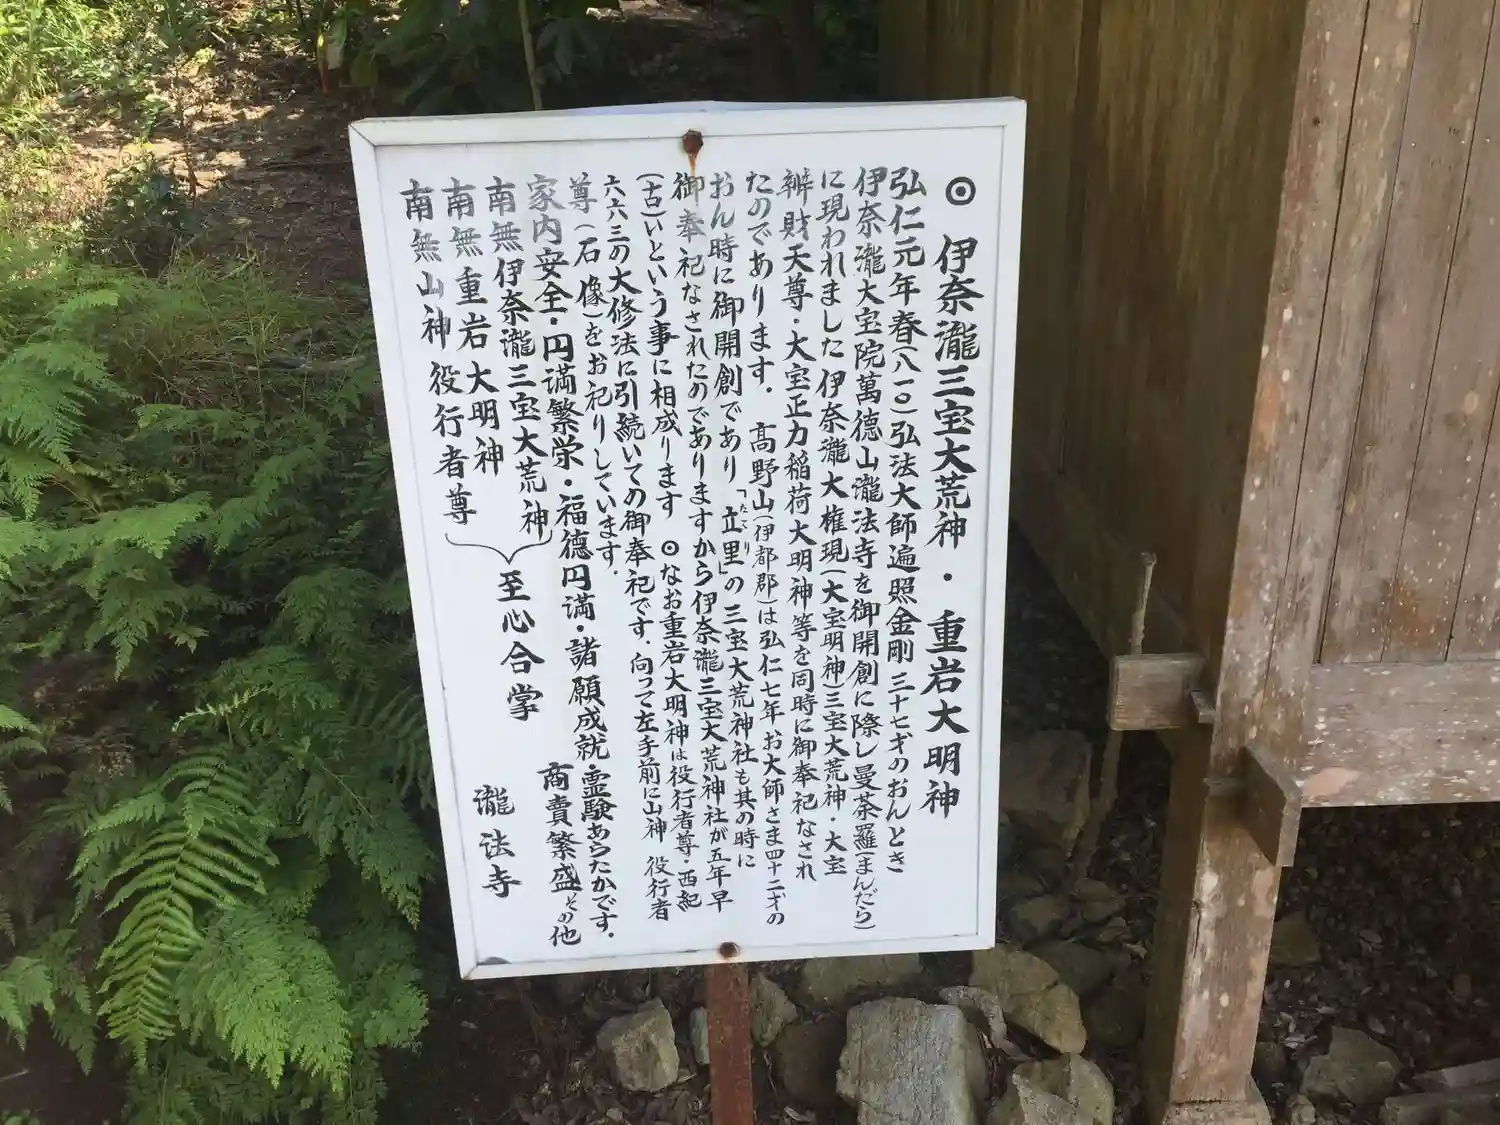 ⊙ 伊奈瀧三宝大荒神・重岩大明神
弘仁元年春(八一〇)弘法大師遍照金剛 三十七才のおんとき
伊奈瀧大宝院萬徳山瀧法寺を御開創に際し曼荼羅(まんだら)
に現われました伊奈瀧大権現(大宝明神)三宝大荒神・大宝
辨財天尊・大宝正力稲荷大明神等を同時に御奉祀なされ
たのであります. 高野山(伊都郡)は弘仁七年お大師さま四十二才の
おん時に御開創であり「立里」の三宝大荒神社も其の時に
たてり
御奉祀なされたのでありますから伊奈瀧三宝大荒神社が五年早
(古)いという事に相成ります ⊙なお重岩大明神は役行者尊・西紀
六六三の大修法に引続いての御奉祀です.向って左手前に山神 役行者
尊(石像)をお祀りしています.
家内安全・円満繁栄・福徳円満・諸願成就・霊験あらたかです.
商売繁盛その他
南無伊奈瀧三宝大荒神
南無重岩大明神
南無山神役行者尊
至心合掌
瀧法寺